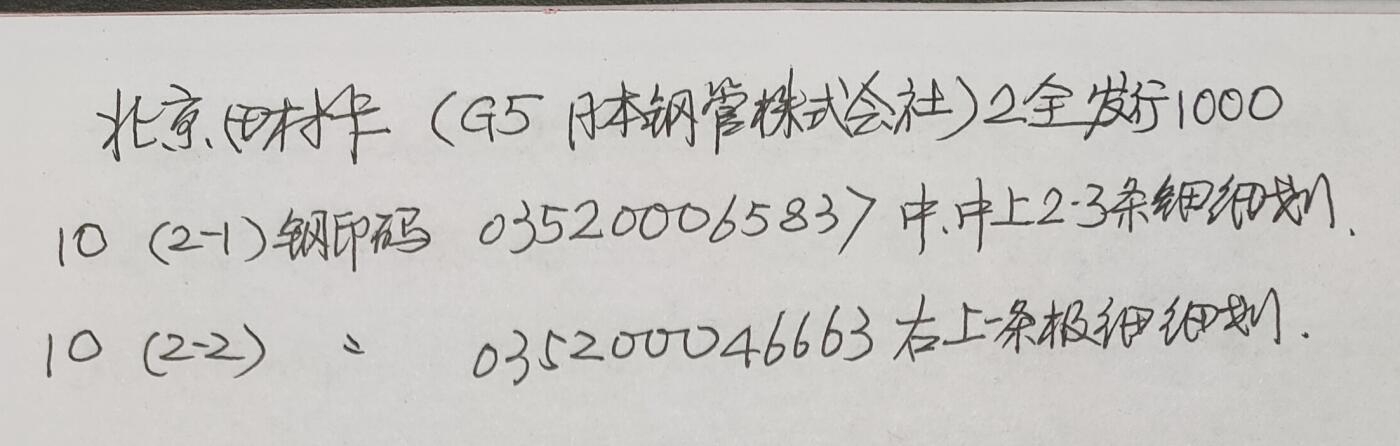 北京田村卡（G5 日本钢管株式会社）2全发行1000
10 （2-1）钢印码 035200065837 中、中上2-3条细细划.
10 （2-2） 〃 035200046663 右上一条极细细划.